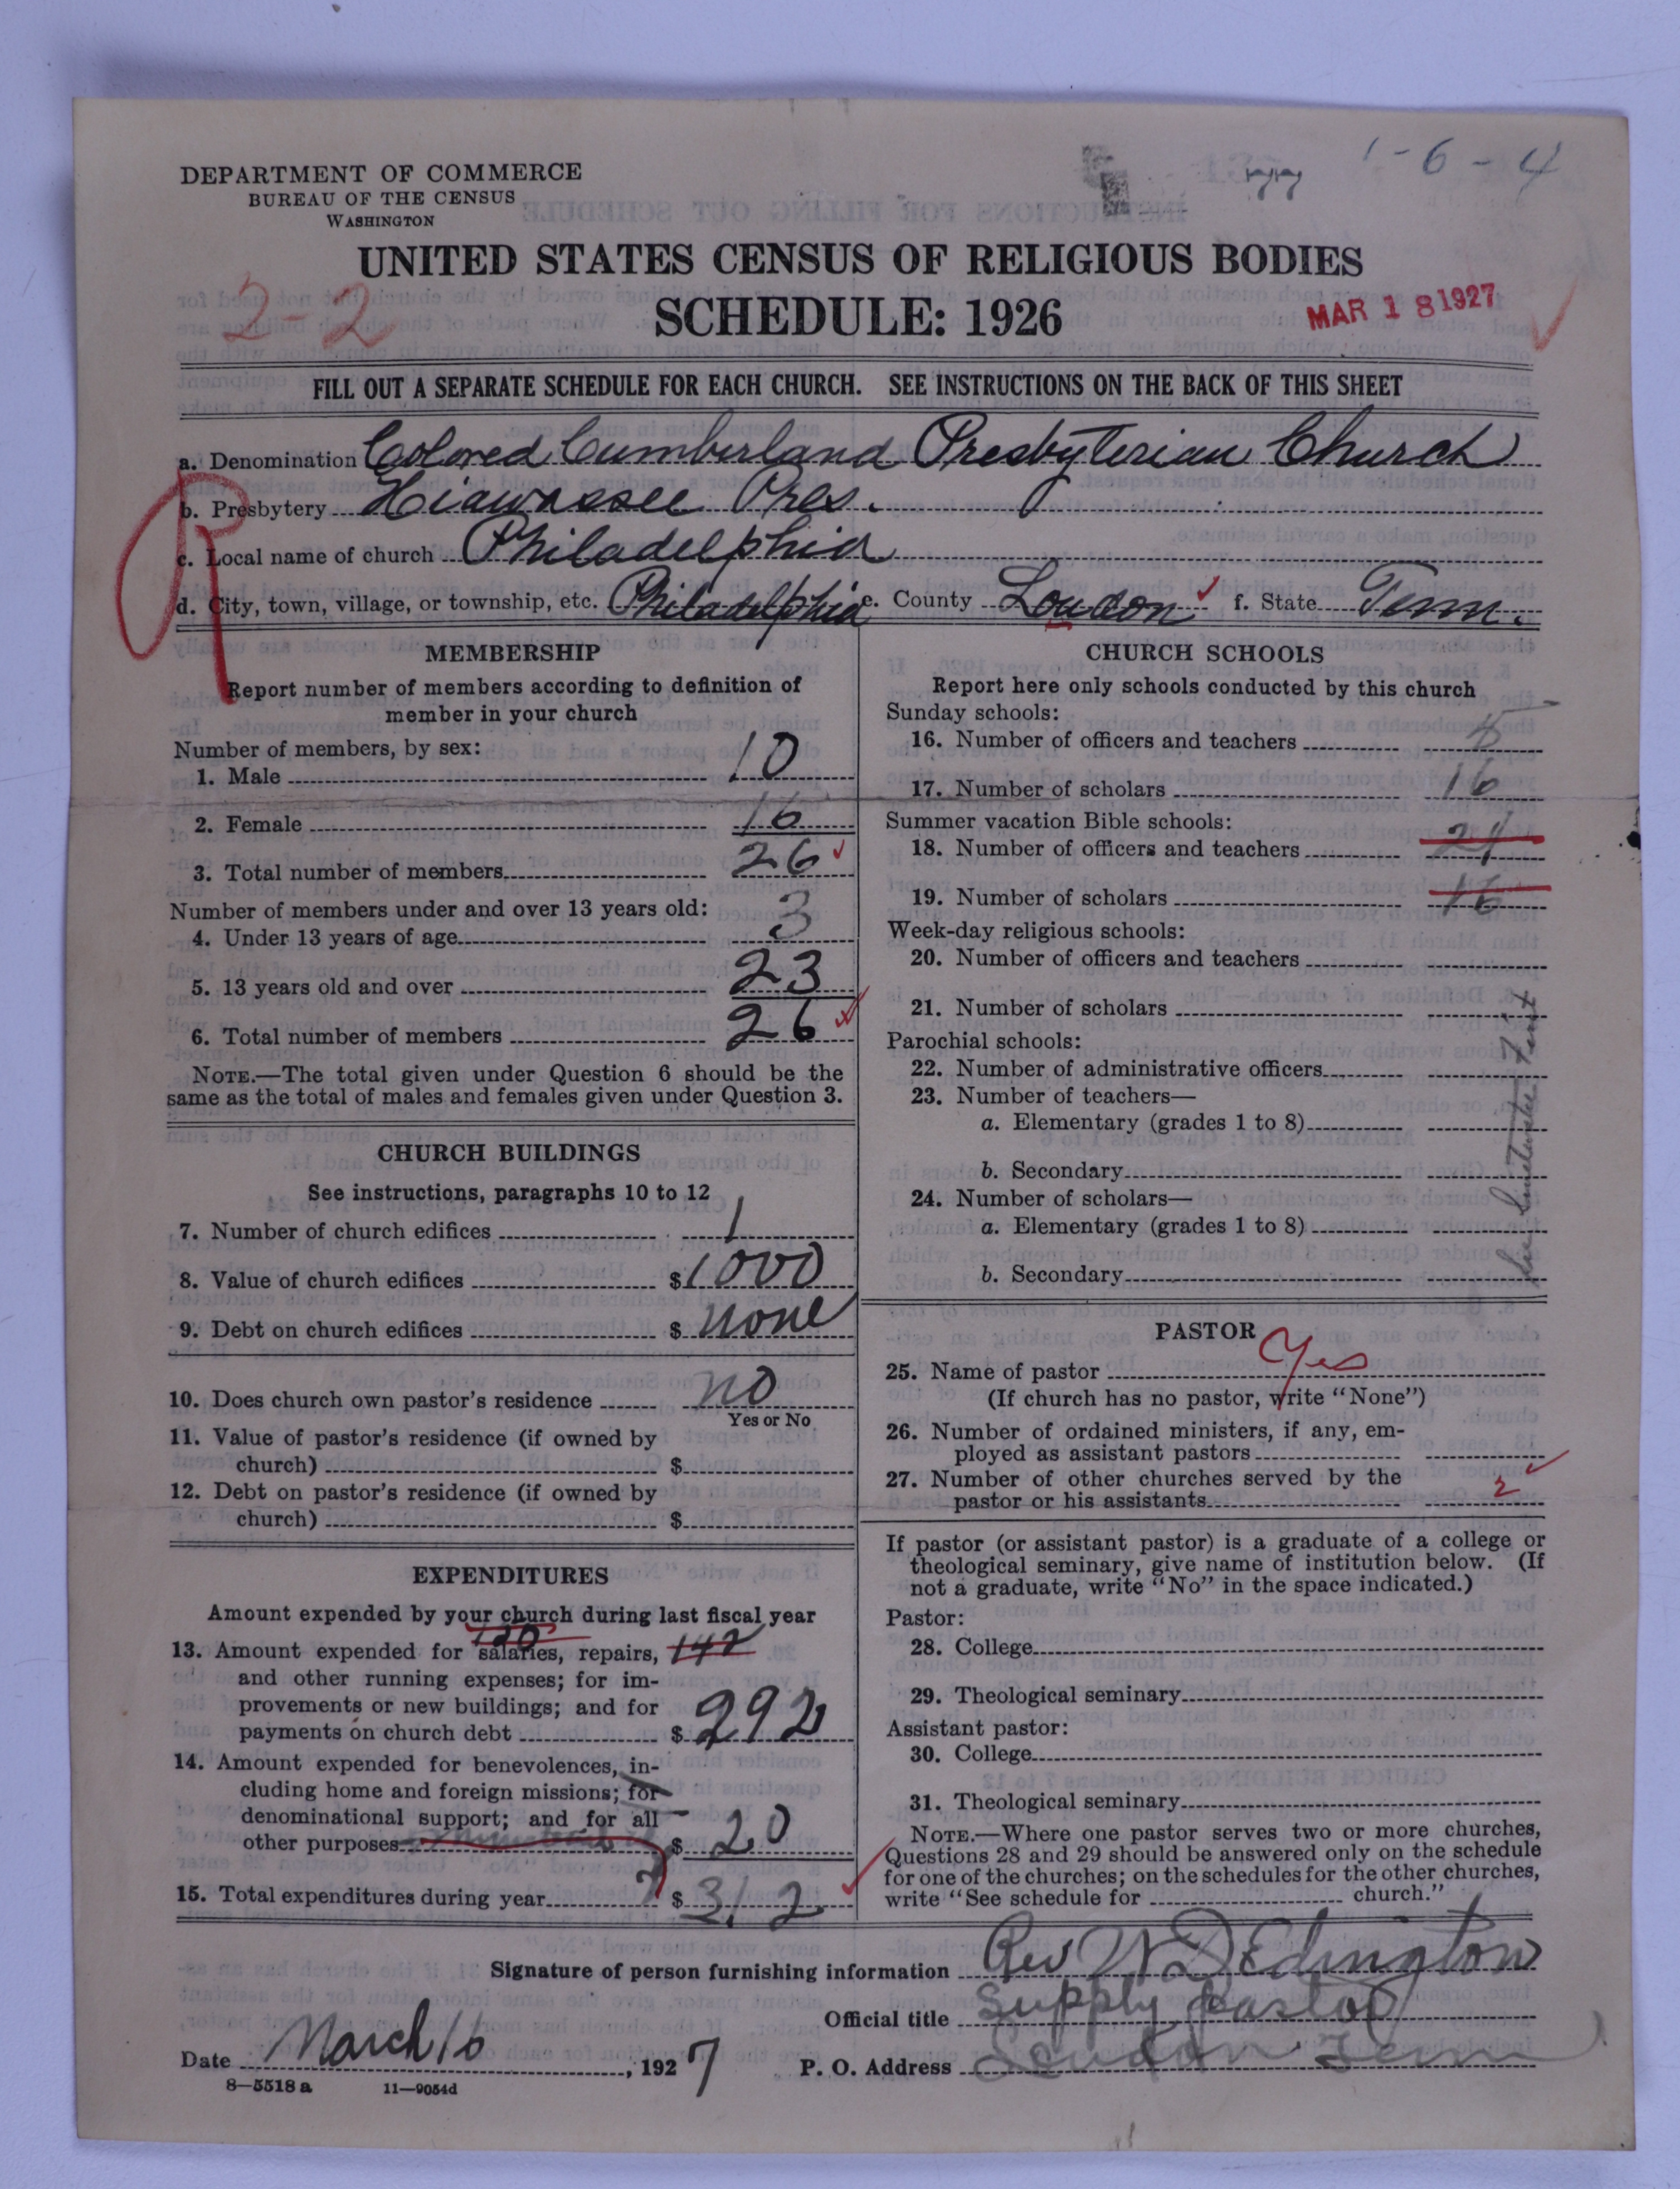 1-6-4
DEPARTMENT OF COMMERCE
BUREAU OF THE CENSUS
WASHINGTON
UNITED STATES CENSUS OF RELIGIOUS BODIES
SCHEDULE: 1926
2-2
MAR 18 1927
FILL OUT A SEPARATE SCHEDULE FOR EACH CHURCH. SEE INSTRUCTIONS ON THE BACK OF THIS SHEET
a. Denomination Colored Cumberland Presbyterian Church
b. Presbytery Hiawassee Pres.
c. Local name of church Philadelphia
d. City, town, village, or township, etc. Philadelphia e. County Loudon f. State Tenn.
R
MEMBERSHIP
Report number of members according to definition of
member in your church
Number of members, by sex:
1. Male 10
2. Female 16
3. Total number of members 26
Number of members under and over 13 years old:
4. Under 13 years of age 3
5. 13 years old and over 23
6. Total number of members 26
NOTE.—The total given under Question 6 should be the
same as the total of males and females given under Question 3.
CHURCH BUILDINGS
See instructions, paragraphs 10 to 12
7. Number of church edifices 1
8. Value of church edifices $1000
9. Debt on church edifices $ none
10. Does church own pastor's residence no
Yes or No
11. Value of pastor's residence (if owned by
church) $
12. Debt on pastor's residence (if owned by
church) $
EXPENDITURES
Amount expended by your church during last fiscal year
120
13. Amount expended for salaries, repairs, 142
and other running expenses; for im-
provements or new buildings; and for
payments on church debt $ 292
14. Amount expended for benevolences, in-
cluding home and foreign missions; for
denominational support; and for all
other purposes $ 20
15. Total expenditures during year $ 312
CHURCH SCHOOLS
Report here only schools conducted by this church
Sunday schools:
16. Number of officers and teachers
17. Number of scholars 16
Summer vacation Bible schools:
18. Number of officers and teachers
19. Number of scholars 16
Week-day religious schools:
20. Number of officers and teachers
21. Number of scholars
Parochial schools:
22. Number of administrative officers
23. Number of teachers—
a. Elementary (grades 1 to 8)
b. Secondary
24. Number of scholars—
a. Elementary (grades 1 to 8)
b. Secondary
PASTOR
25. Name of pastor Yes
(If church has no pastor, write "None")
26. Number of ordained ministers, if any, em-
ployed as assistant pastors
27. Number of other churches served by the
pastor or his assistants 2
If pastor (or assistant pastor) is a graduate of a college or
theological seminary, give name of institution below. (If
not a graduate, write "No" in the space indicated.)
Pastor:
28. College
29. Theological seminary
Assistant pastor:
30. College
31. Theological seminary
NOTE.—Where one pastor serves two or more churches,
Questions 28 and 29 should be answered only on the schedule
for one of the churches; on the schedules for the other churches,
write "See schedule for church."
Signature of person furnishing information Rev W D Edington
Official title Supply pastor
Date March 16, 1927 P. O. Address Loudon Tenn
8—5518 a 11—9054d